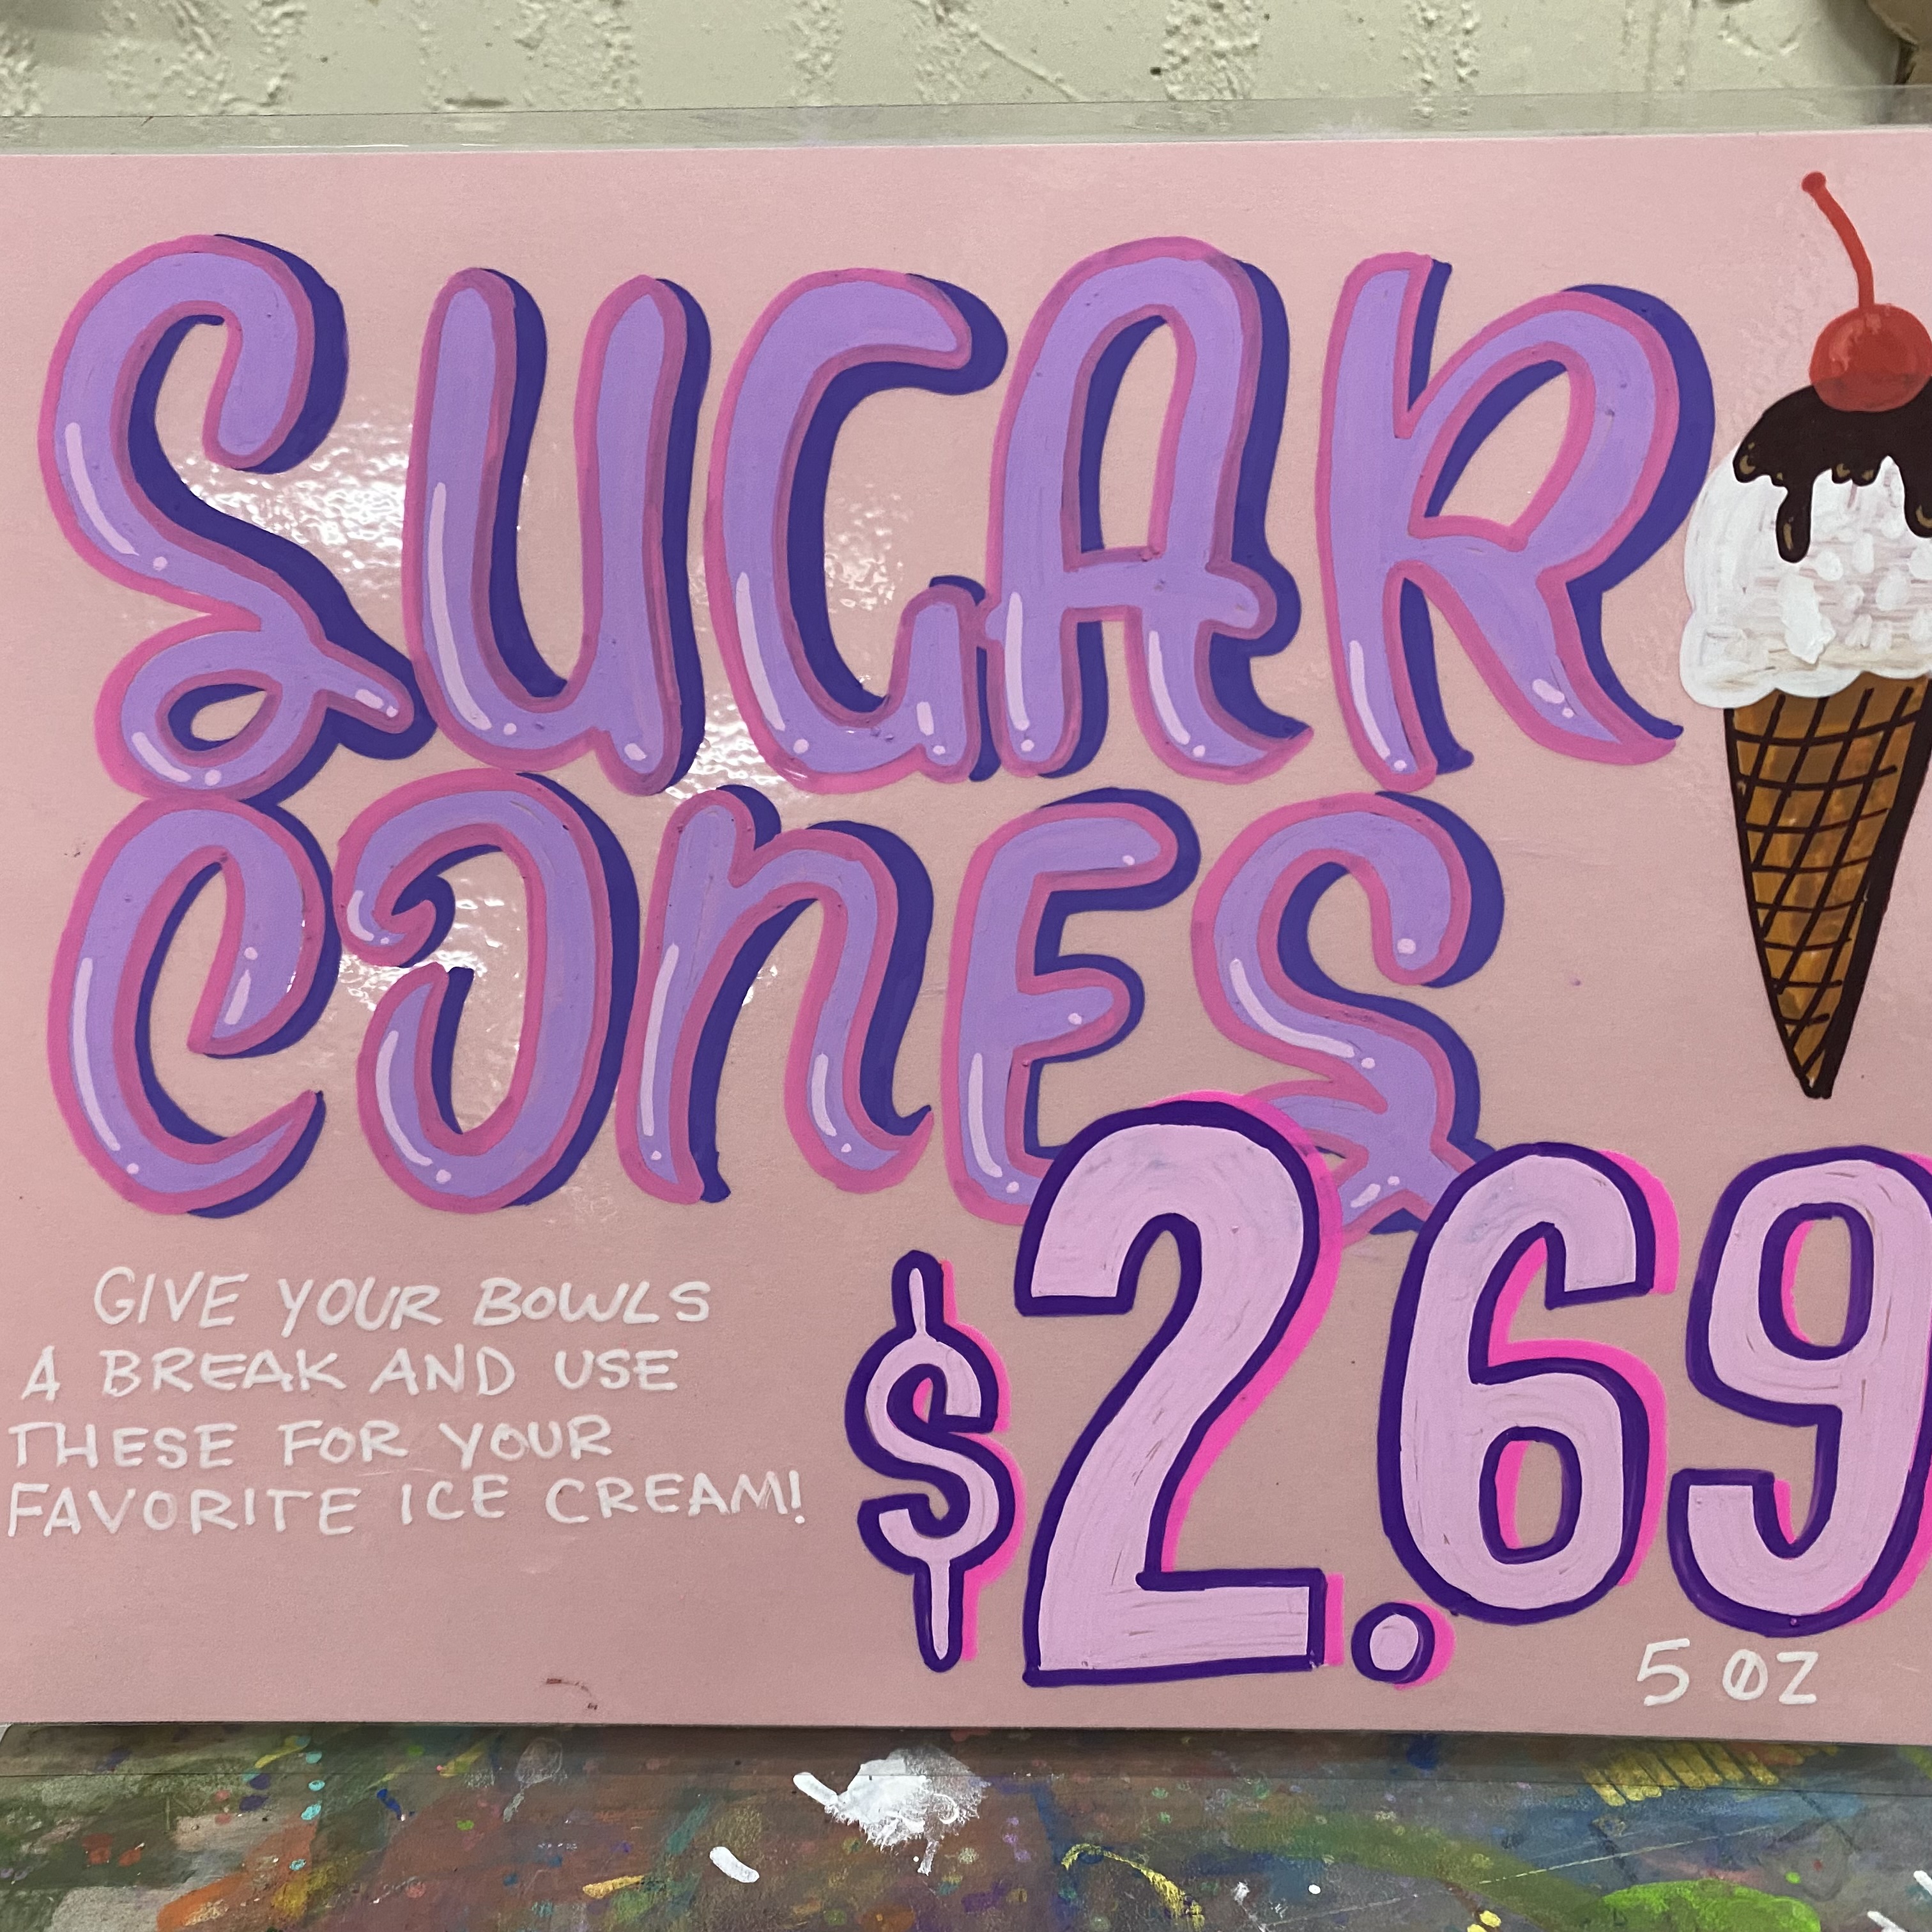 SUGAR
CONES
GIVE YOUR BOWLS
A BREAK AND USE
THESE FOR YOUR
FAVORITE ICE CREAM!
$2.69
5 OZ